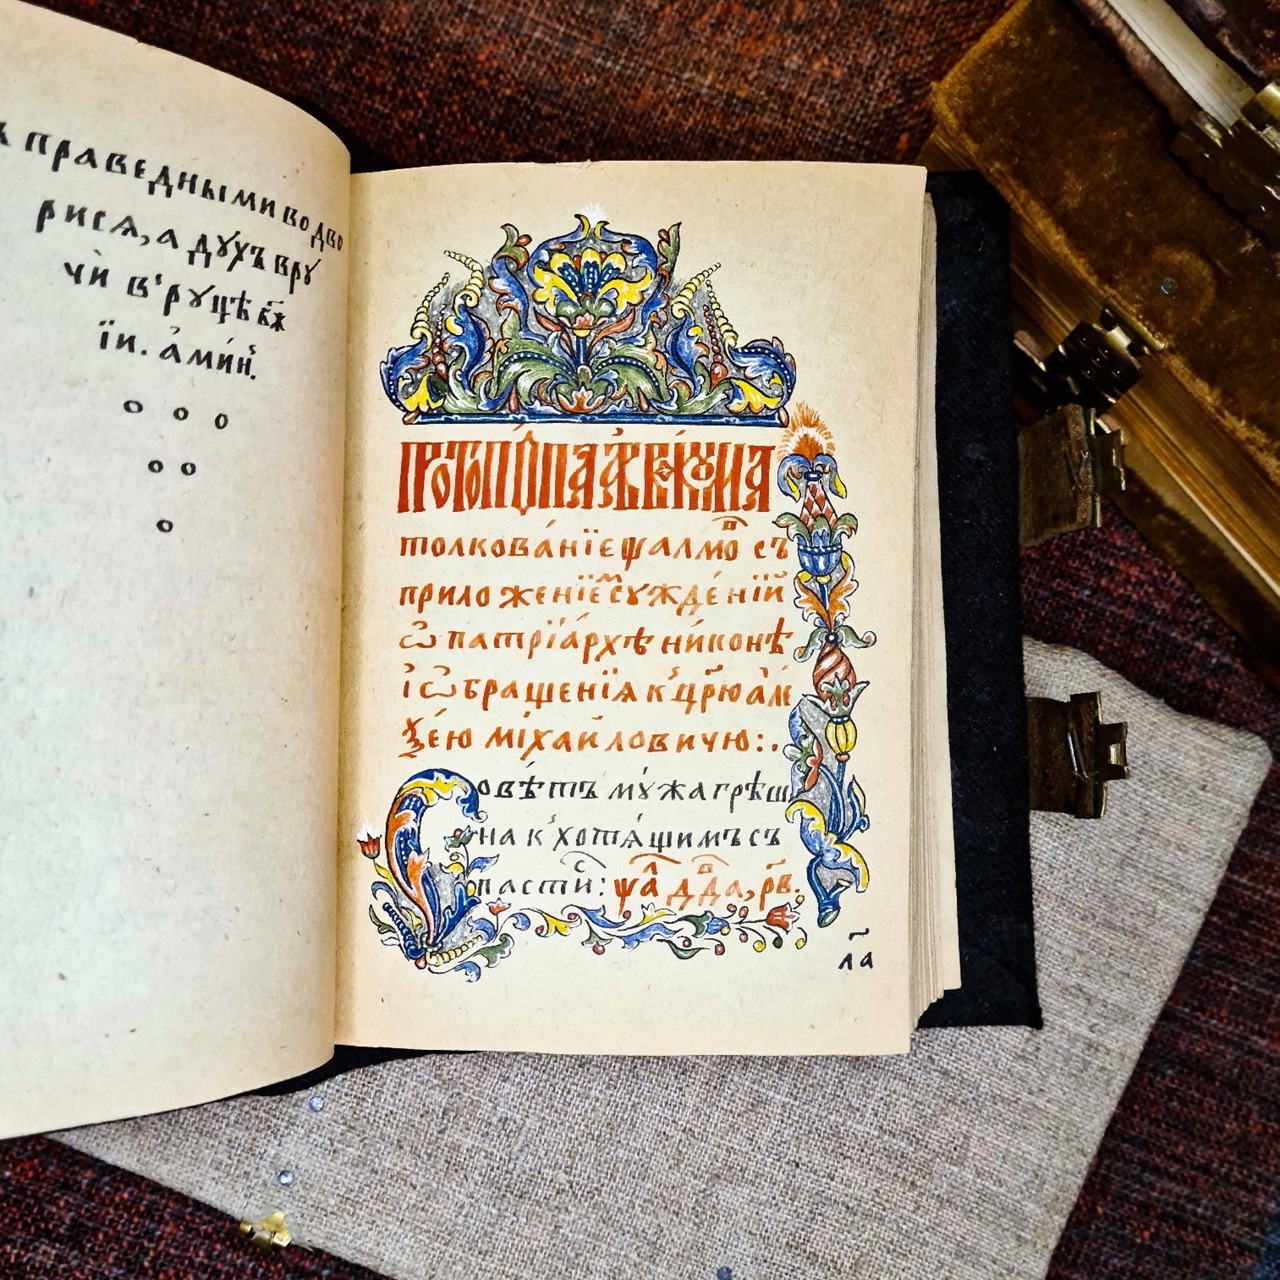 ъ праведными во дво
рися, а дꙋхъ врꙋ
чѝ в̾ рꙋцѣ бж҃
їи. а҆ми́н̾.
протопо́па а҆вваќꙋма
толкова́нїе ѱалмоⷡ҇ съ
приложенїеⷨ сꙋжде́нїй
ѡ патрїа́рхѣ ни́конѣ
і ѡбращенїѧ к̾ цр҃ю але́
ѯе́ю мїха́йловичю:.
Совѣ́тъ мꙋ́жа грѣш
на к̾ хотѧ́щимъ съ
пастиⷭ: ѱаⷧ҇ дв҃да, рв҃.
ла҃